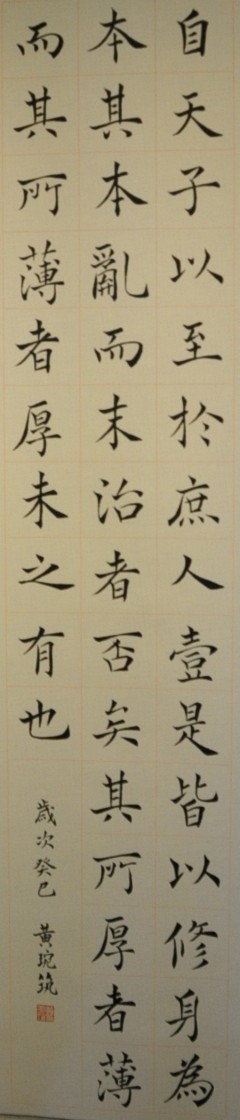 自天子以至於庶人壹是皆以修身為
本其本亂而末治者否矣其所厚者薄
而其所薄者厚未之有也
歲次癸巳 黃琬筑